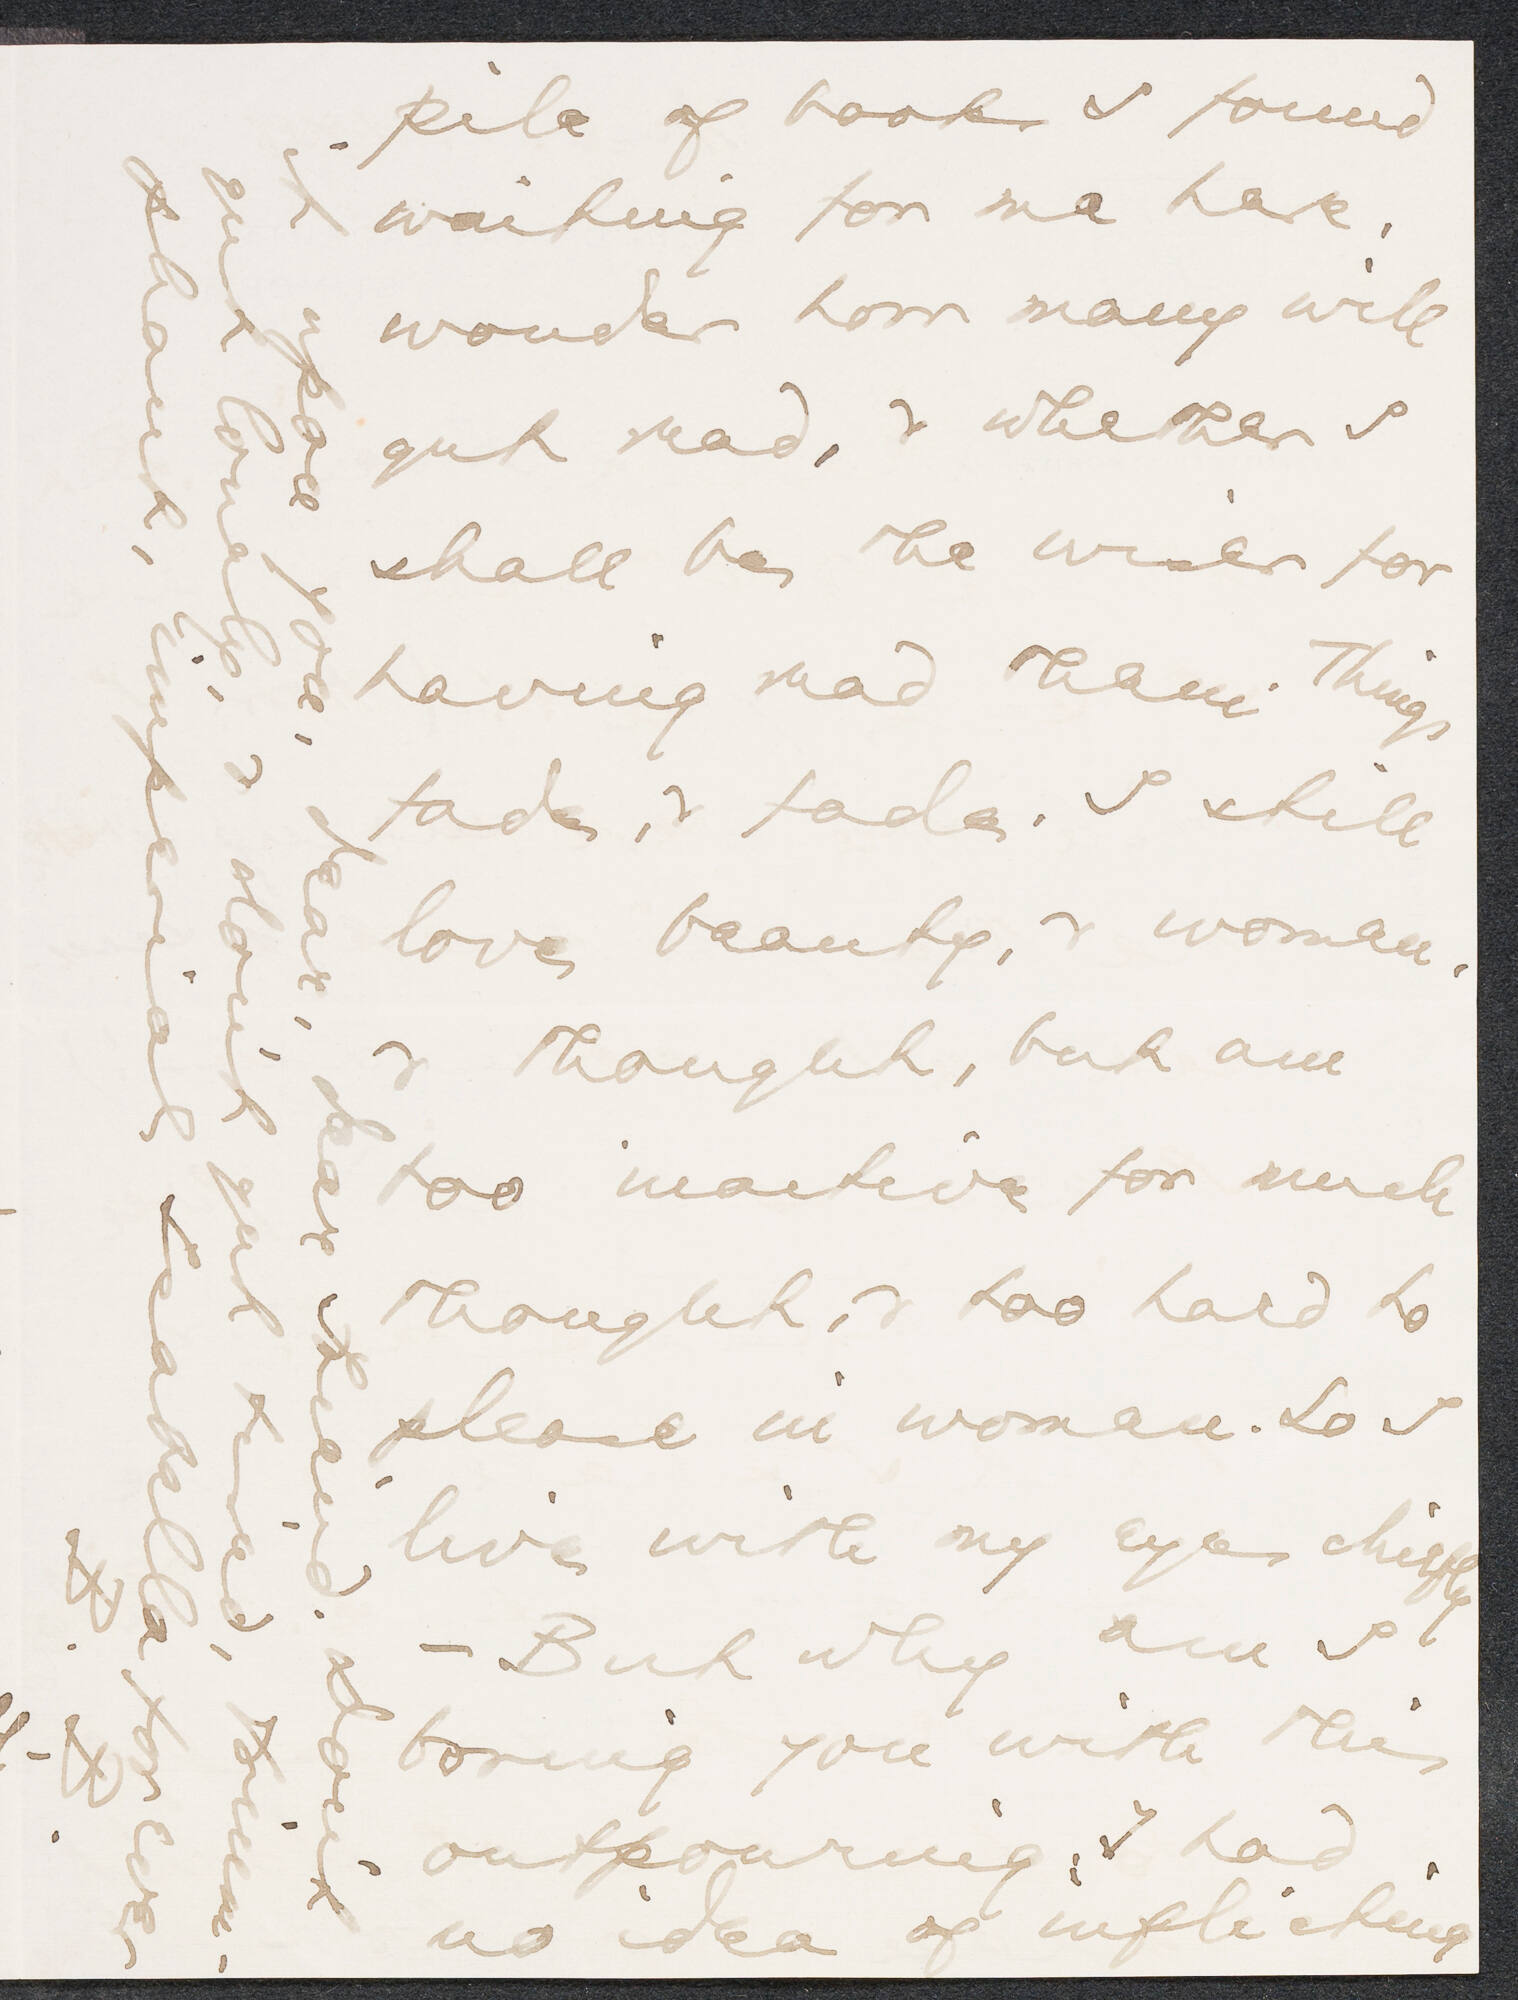 pile of books I found
waiting for me here.
wonder how many will
get read, & whether I
shall be the wiser for
having read them. Things
fade, & fade. I still
love beauty, & woman.
& thought, but am
too inactive for much
thought, & too hard to
please in woman. So I
live with my eyes chiefly
- But why am I
boring you with this
outpouring? I had
no idea of inflicting
it upon you, dear, dear friend. Don't
get lonely, & don't get tired, trium-
phant, imperial Isabella for ever